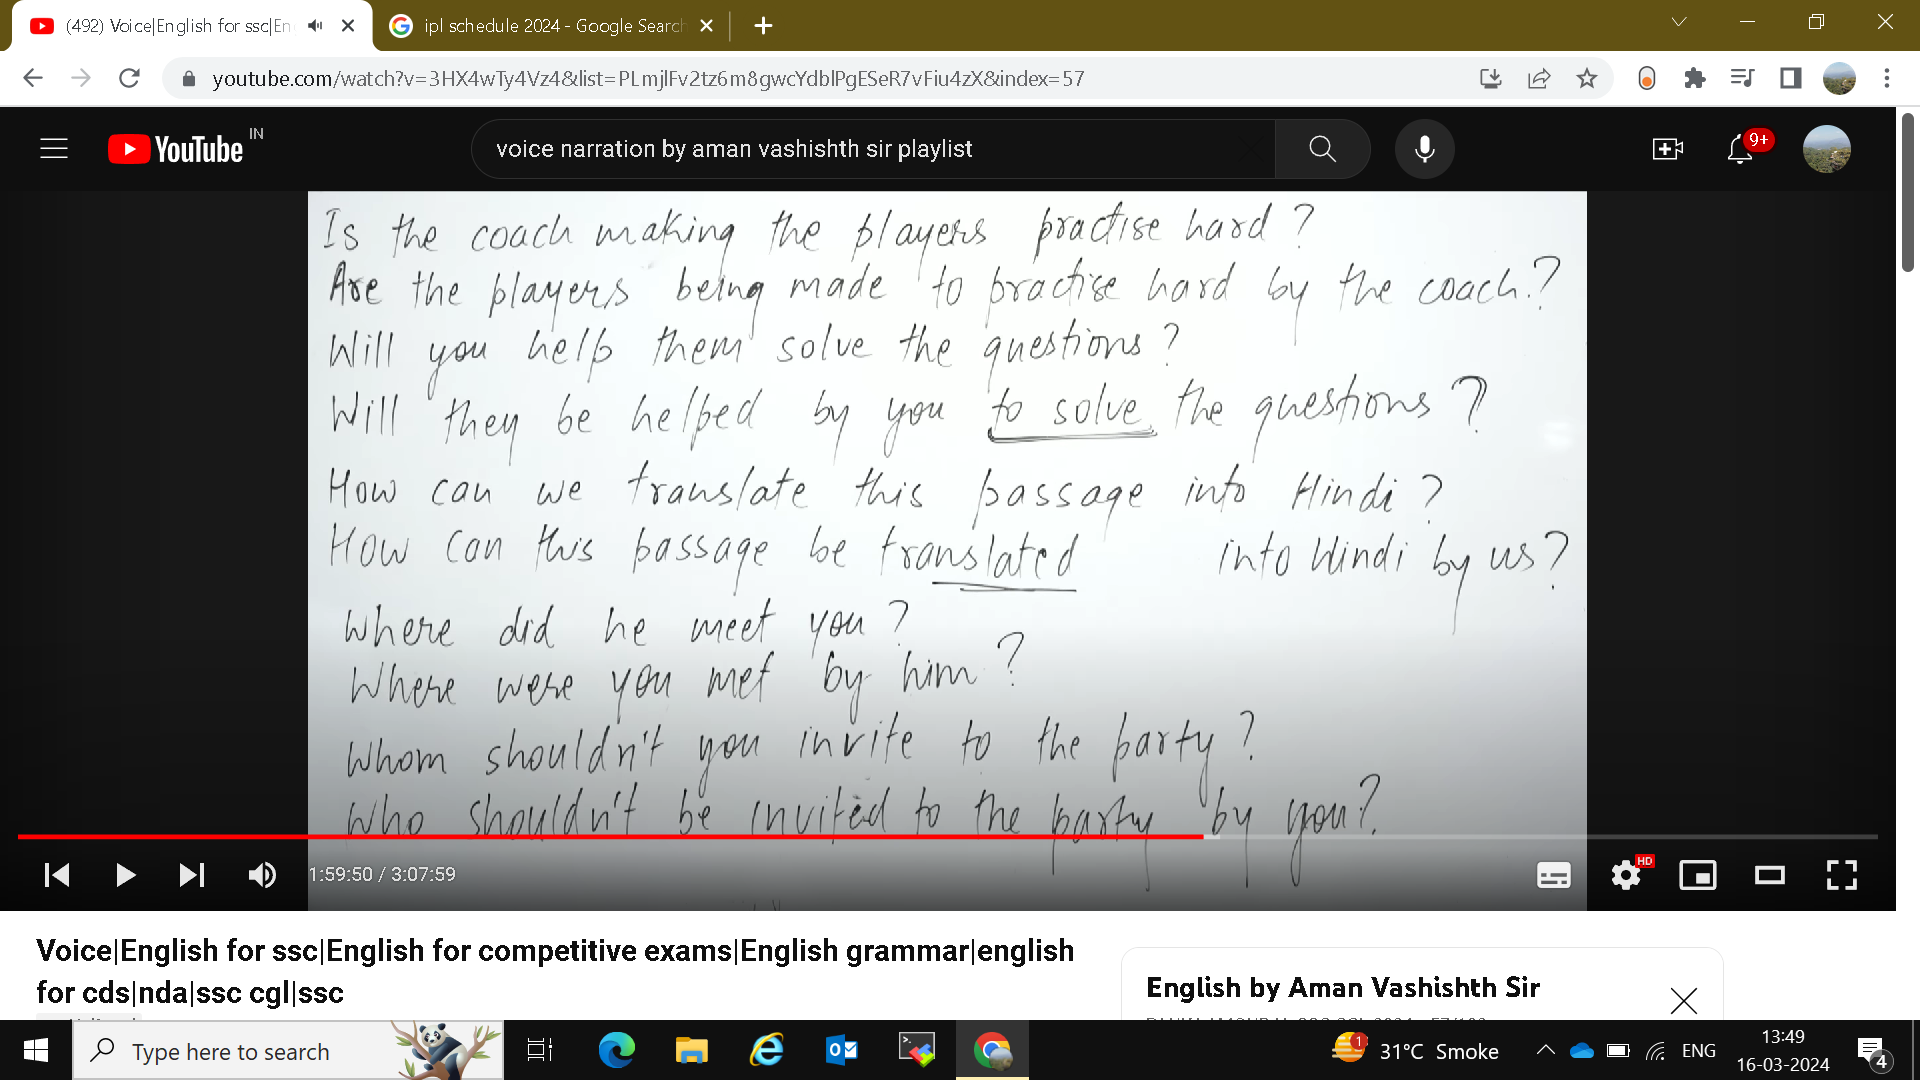 (492) Voice|English for ssc|En
ipl schedule 2024 - Google Search
youtube.com/watch?v=3HX4wTy4Vz4&list=PLmjlFv2tz6m8gwcYdblPgESeR7vFiu4zX&index=57
YouTube IN
voice narration by aman vashishth sir playlist
9+
Is the coach making the players practise hard?
Are the players being made to practise hard by the coach.?
Will you help them solve the questions?
Will they be helped by you to solve the questions?
How can we translate this passage into Hindi?
How can this passage be translated into Hindi by us?
Where did he meet you?
Where were you met by him?
Whom shouldn't you invite to the party?
Who shouldn't be invited to the party by you?
1:59:50 / 3:07:59
HD
Voice|English for ssc|English for competitive exams|English grammar|english
for cds|nda|ssc cgl|ssc
English by Aman Vashishth Sir
Type here to search
1
31°C Smoke
ENG
13:49
16-03-2024
4